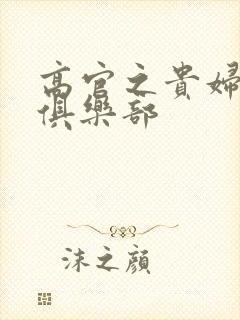 高官之貴婦
俱樂部
沫之顏